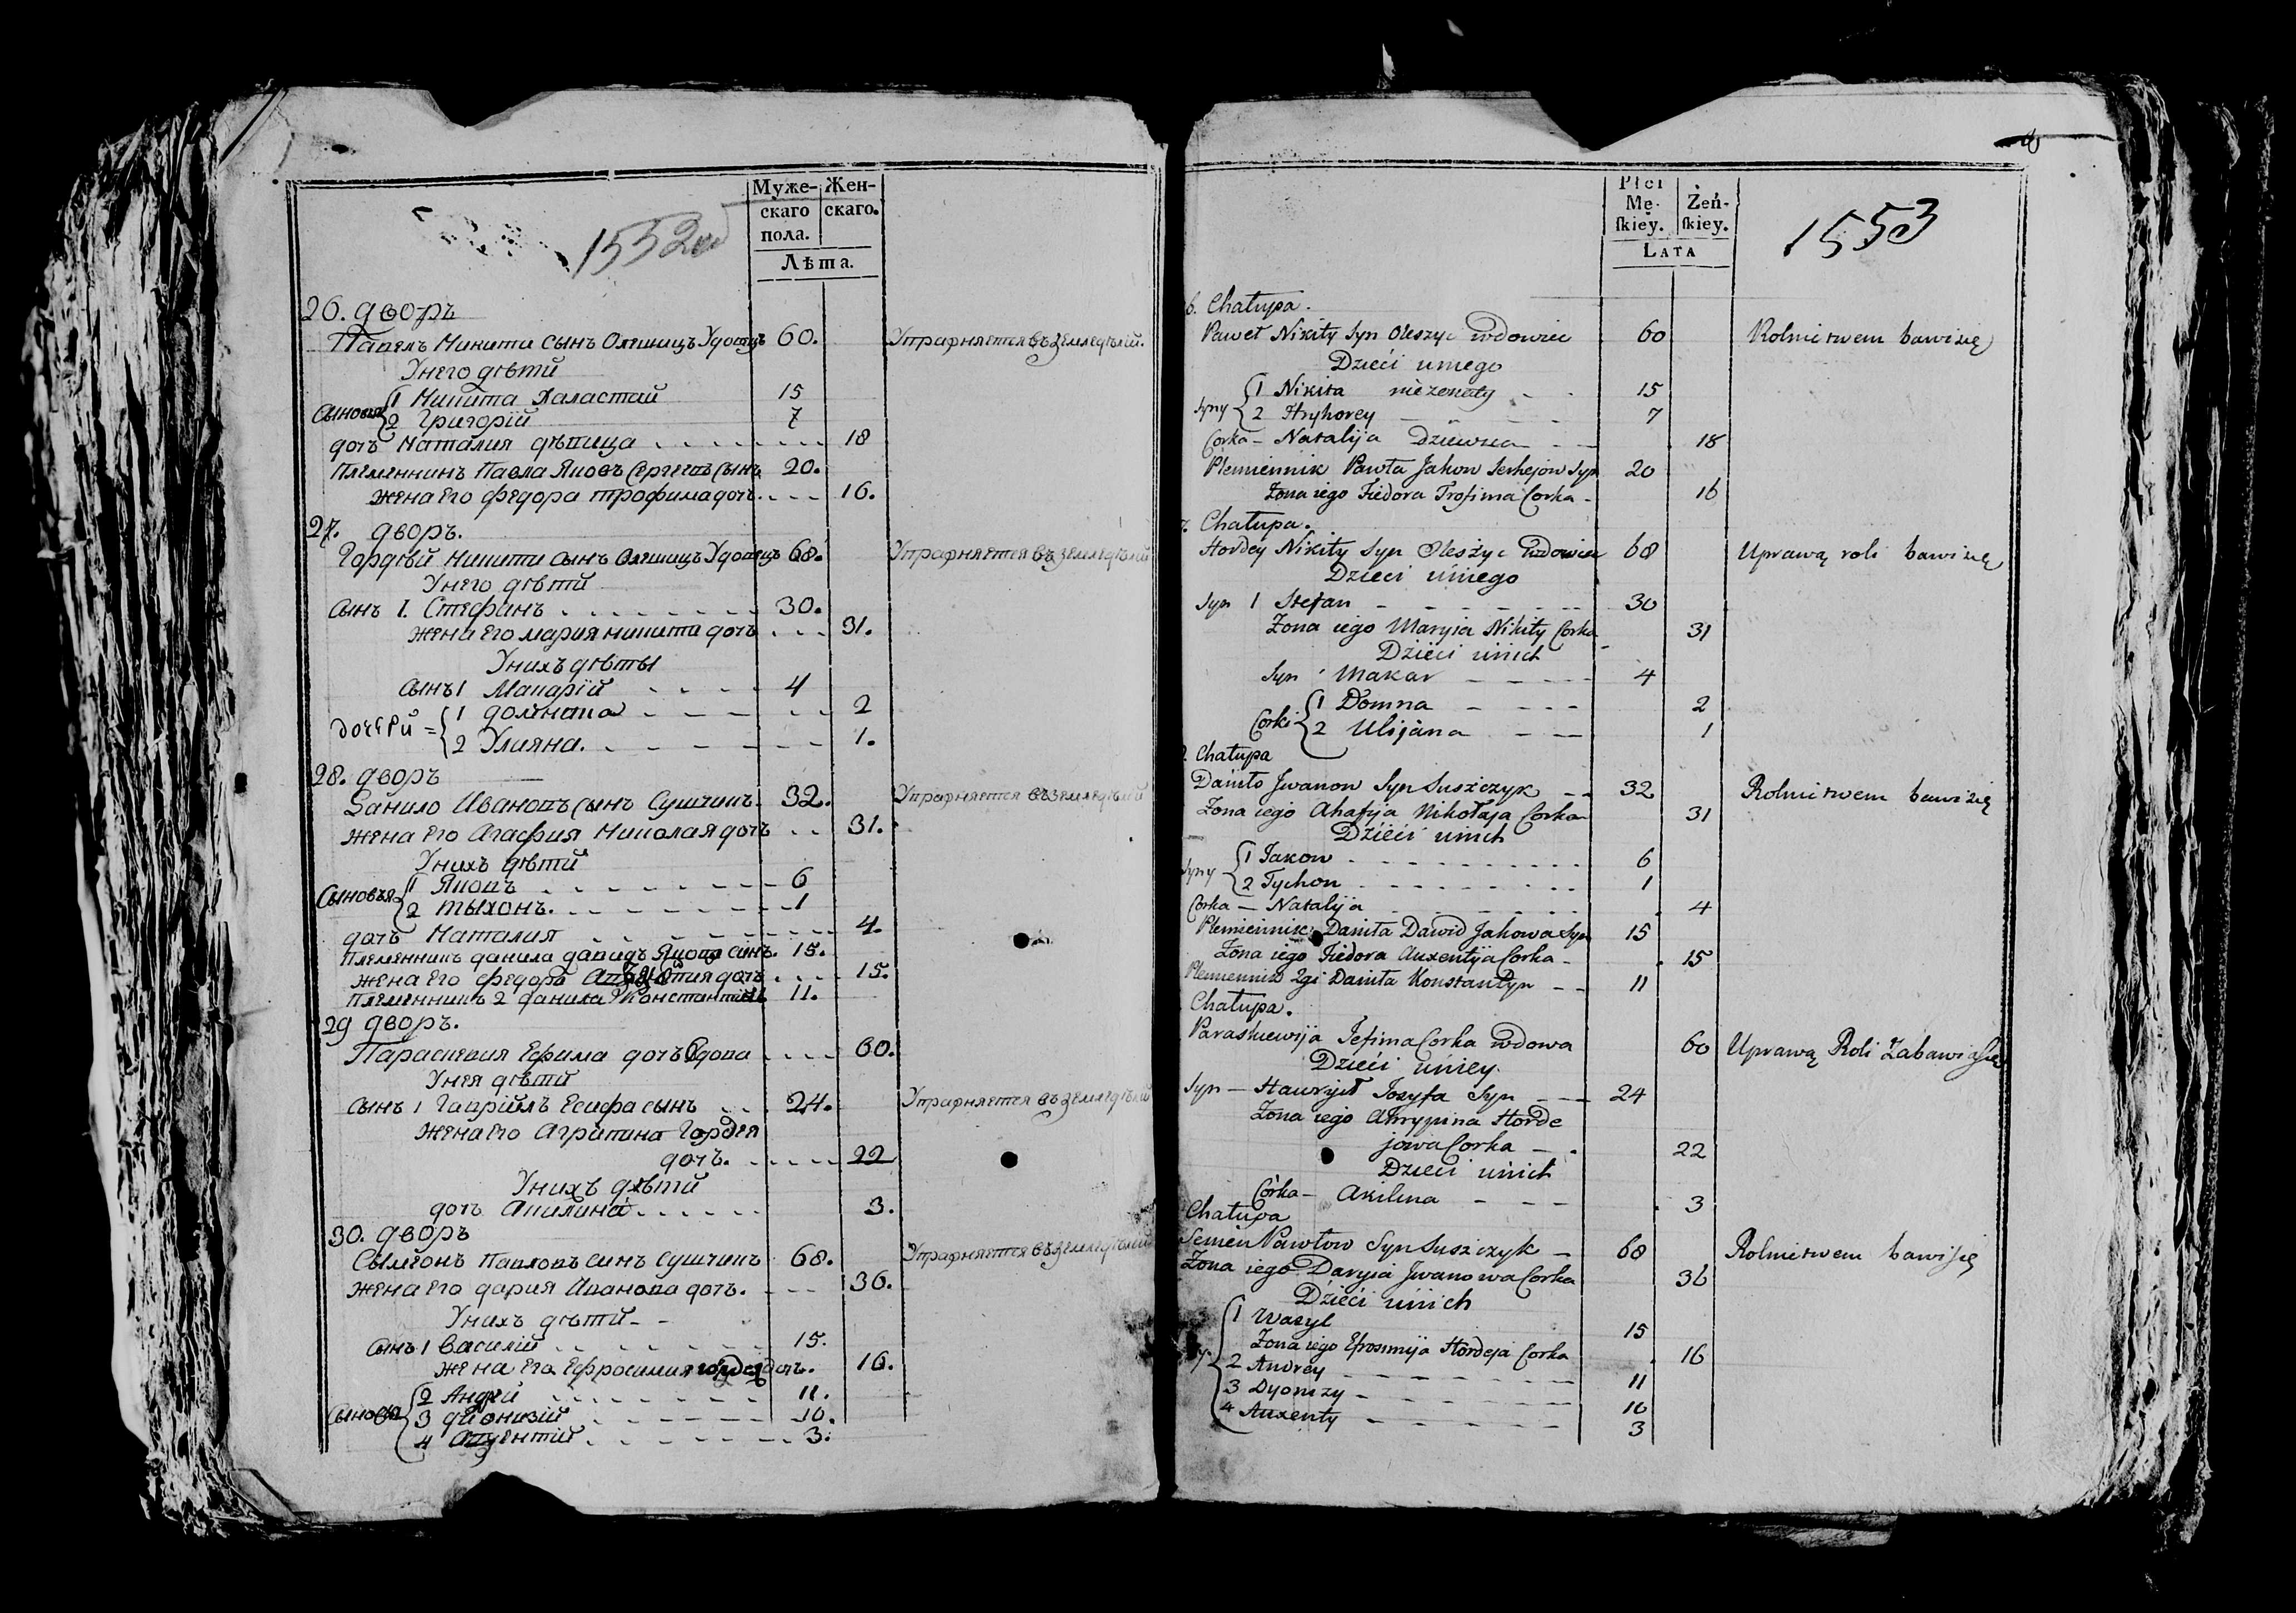 Муже- Жен-
скаго скаго.
пола.
Лѣта.
1552
26. дворъ
Павелъ Никити сынъ Олешицъ Удовецъ 60. Упраѳняется въ земледѣлій.
Унего дѣтй
Сыновья 1 Никита Халастай 15
2 Григорій 7
дочъ Наталия дѣвица 18
Племенникъ Павла Яковъ Сергеевъ Сынъ 20.
жена Его федора трофима дочъ. 16.
27. дворъ.
Гордѣй Никити сынъ Олешицъ Удовецъ 68. Упраѳняется въ земледѣлій
Унего дѣтй
Сынъ 1. Стефанъ 30.
жена Его мария никити дочъ 31.
Унихъ дѣты
сынъ 1 Макарій 4
дочерй = 1 домната 2
2 Улияна. 1.
28. дворъ
Данило Ивановъ сынъ Сушчикъ. 32. Упраѳняется въ земледѣлій
жена Его Агафия Николая дочъ 31.
Унихъ дѣтй
Сыновья 1 Яковъ 6
2 тыхонъ. 1
дочъ Наталия 4.
Племенникъ данила давидъ Якова синъ. 15.
жена Его федора дочъ 15.
племенникъ 2 данила Константинъ 11.
29 дворъ.
Параскевия Ефима дочъ Вдова 60.
Унея дѣтй
Сынъ 1 Гаврійлъ Есифа сынъ 24. Упраѳняется въ земледѣлій
жена Его Агрипина Гордея
дочъ. 22
Унихъ дѣтй
дочъ Акилина 3.
30. дворъ
Сымеонъ Павловъ синъ Сушчикъ 68. Упраѳняется въ земледѣлій
жена Его дария Иванова дочъ. 36.
Унихъ дѣтй
сынъ 1 Василій 15.
жена Его Ефросимия гордея дочъ. 16.
Сыновя 2 Андрей 11.
3 дионизій 10.
4 3.
Płci
Mę- Żeń-
ſkiey. ſkiey.
LATA
1553
6. Chałupa.
Paweł Nikity Syn Oleszyc wdowiec 60 Rolnictwem bawi się
Dzieći uniego
Syny 1 Nikita nieżenaty 15
2 Hryhorey 7
Corka – Natalija Dziewka 18
Plemiennik Pawła Jakow Serhejow Syn 20
Żona iego Fiedora Trofima Corka - 16
7. Chałupa.
Hordey Nikity Syn Oleszyc wdowiec 68 Uprawą roli bawi się
Dzieci uniego
Syn 1 Stefan 30
Żona iego Maryia Nikity Corka 31
Dzieci unich
Syn 1 Makar 4
Corki 1 Domna 2
2 Ulijana 1
Chałupa
Daniło Jwanow Syn Suszczyk 32 Rolnictwem bawi się
Żona iego Ahafija Nikołaja Corka 31
Dzieci unich
Syny 1 Jakow 6
2 Tychon 1
Corka – Natalija 4
Plemiennik Daniła Dawid Jakowa Syn 15
Żona iego Fiedora Auxentyja Corka - 15
Plemiennik 2gi Daniła Konstantyn 11
Chałupa.
Paraskiewija Jefima Corka wdowa 60 Uprawą Roli Zabawia się
Dzieci uniey.
Syn – Hawryił Jozyfa Syn 24
Żona iego Ahrypina Horde
jowa Corka 22
Dzieci unich
Córka – Akilina 3
Chałupa
Semen Pawłow Syn Suszczyk 68 Rolnictwem bawi się
Żona iego Daryia Jwanowa Corka 36
Dzieci unich
1 Wasyl 15
Żona iego Efrosimija Hordeja Corka 16
2 Andrey 11
3 Dyonizy 10
4 Auxenty 3